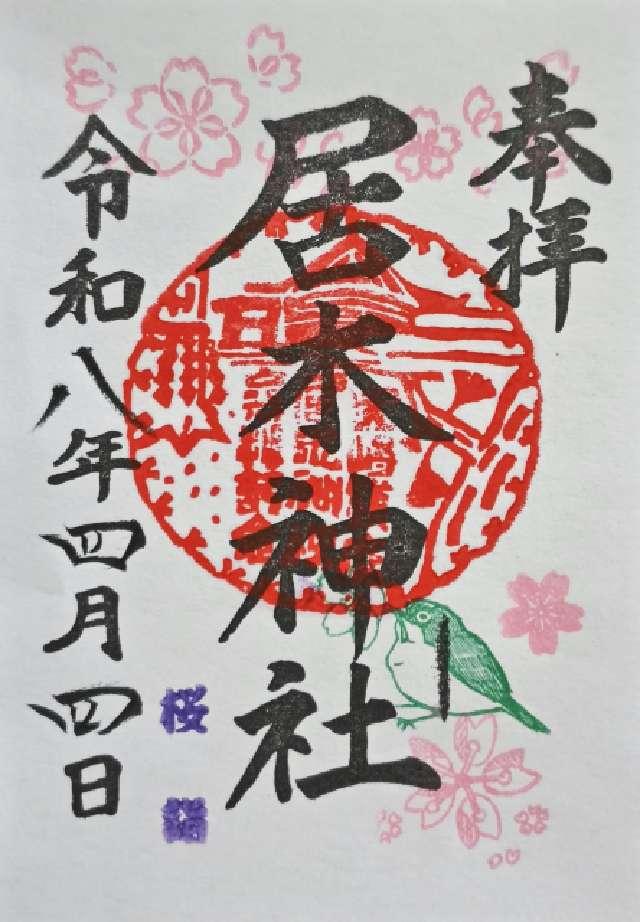 奉拝
居木神社
令和八年四月四日
桜